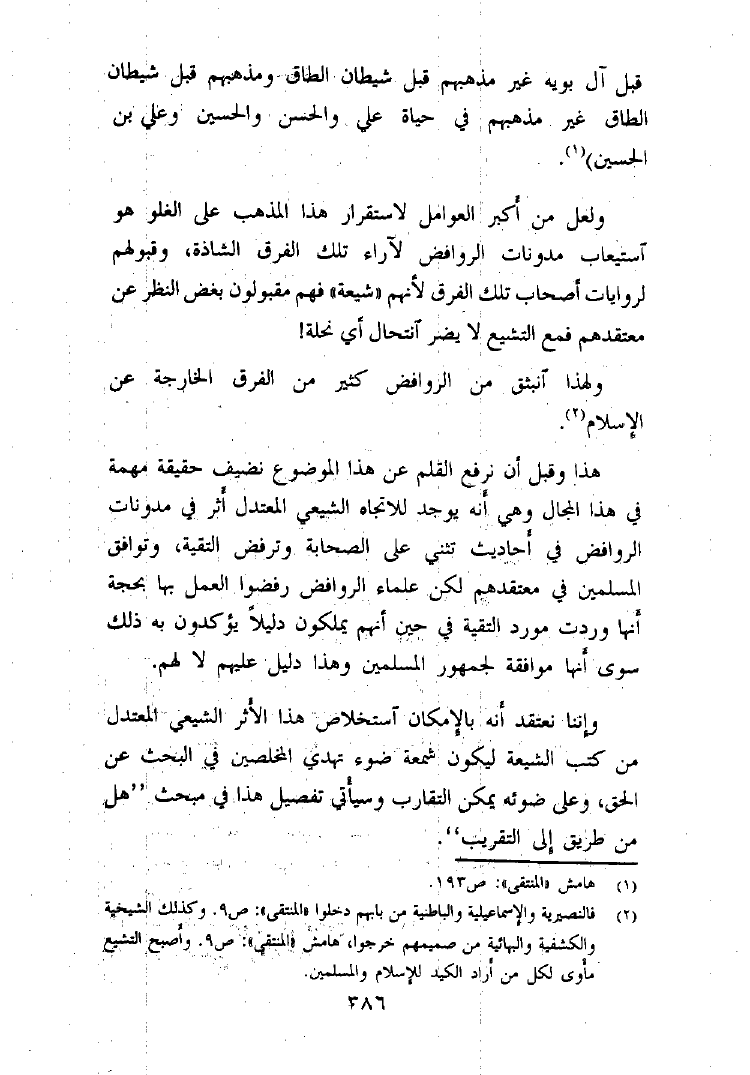 قبل آل بويه غير مذهبهم قبل شيطان الطاق ومذهبهم قبل شيطان
الطاق غير مذهبهم في حياة علي والحسن والحسين وعلي بن
الحسين)(١).
ولعل من أكبر العوامل لاستقرار هذا المذهب على الغلو هو
آستيعاب مدونات الروافض لآراء تلك الفرق الشاذة، وقبولهم
لروايات أصحاب تلك الفرق لأنهم «شيعة» فهم مقبولون بغض النظر عن
معتقدهم فمع التشيع لا يضر آنتحال أي نحلة!
ولهذا آنبثق من الروافض كثير من الفرق الخارجة عن
الإسلام(٢).
هذا وقبل أن نرفع القلم عن هذا الموضوع نضيف حقيقة مهمة
في هذا المجال وهي أنه يوجد للاتجاه الشيعي المعتدل أثر في مدونات
الروافض في أحاديث تثني على الصحابة وترفض التقية، وتوافق
المسلمين في معتقدهم لكن علماء الروافض رفضوا العمل بها بحجة
أنها وردت مورد التقية في حين أنهم يملكون دليلاً يؤكدون به ذلك
سوى أنها موافقة لجمهور المسلمين وهذا دليل عليهم لا لهم.
وإننا نعتقد أنه بالإمكان آستخلاص هذا الأثر الشيعي المعتدل
من كتب الشيعة ليكون شمعة ضوء تهدي المخلصين في البحث عن
الحق، وعلى ضوئه يمكن التقارب وسيأتي تفصيل هذا في مبحث ‘‘هل
من طريق إلى التقريب’’.
(١) هامش «المنتقى»: ص١٩٣.
(٢) فالنصيرية والإسماعيلية والباطنية من بابهم دخلوا «المنتقى»: ص٩. وكذلك الشيخية
والكشفية والبهائية من صميمهم خرجوا، هامش «المنتقى»: ص٩. وأصبح التشيع
مأوى لكل من أراد الكيد للإسلام والمسلمين.
٣٨٦